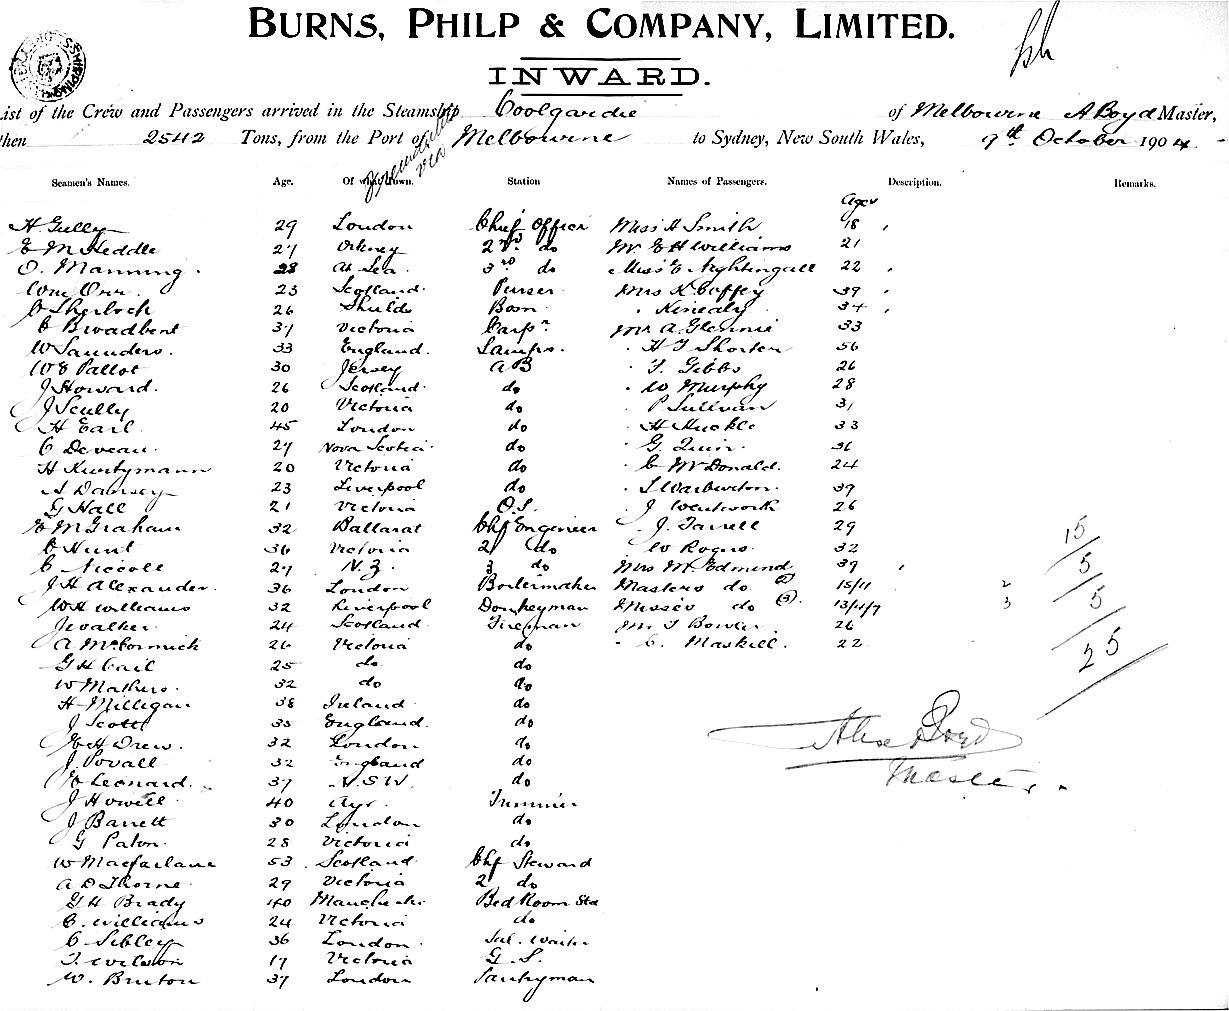 BURNS, PHILP & COMPANY, LIMITED.
INWARD.
List of the Crew and Passengers arrived in the Steamship Coolgardie of Melbourne A Boyd Master,
then 2542 Tons, from the Port of Fremantle via Melbourne to Sydney, New South Wales, 9th October 1904
Seamen's Names. Age. Of what Town. Station Names of Passengers. Description. Remarks.
Age
H Gully 29 London Chief Officer Miss H Smith 18
E M Heddle 27 Orkney 2nd do Mr E H Williams 21
O. Manning. 28 At Sea. 3rd do Miss E Nightingall 22
Wm Orr 23 Scotland Purser Mrs K Coffey 39
C Sherloch 26 Shields Bosn " Kinealy 34
C Broadbent 37 Victoria Carpr Mr A Glennie 33
W Saunders. 33 England. Lamps. " H J Shorter 56
W E Pallot 30 Jersey AB " T. Gibbs 26
J Howard. 26 Scotland. do " W Murphy 28
J Scully 20 Victoria do " P Sullivan 31
H Earl 45 London do " H Huckle 33
C Deveau. 27 Nova Scotia do " G. Quin. 36
H Kurtymann 20 Victoria do " C McDonald. 24
A Dansey 23 Liverpool do " S Warburton. 39
G Hall 21 Victoria O.S. " J Wentwork 26
E M Graham 32 Ballarat Chf Engineer " J. Farrell 29
C Hunt 36 Victoria 2 do " W Rogers. 32 15
C Niccoll 27 N.Z. 3 do Mrs M. Edmond 39 5
J H Alexander. 36 London Boilermaker Masters do (2) 15/11 2
W H Williams 32 Liverpool Donkeyman Misses do (3) 13/11/7 3 5
J Walker. 24 Scotland. Fireman Mr J Bower 26
A McCormick 26 Victoria do " C. Maskill. 22 25
G H Cail 25 do do
W Mathers. 32 do do
H. Milligan 38 Ireland do
J Scott 35 England. do
E H Drew. 32 London do
J. Povall 32 England do
E Leonard. 37 N.S.W. do
J Howell 40 Ayr. Trimmer
J Barrett 30 London do
G Paton. 28 Victoria do
W Macfarlane 53 Scotland Chf Steward
A D Thorne. 29 Victoria 2 do
G H Brady 40 Manchester Bed Room Std
C. Williams 24 Victoria do
C Sibley 36 London. Sal. Waiter
T. Wilson 17 Victoria G.S.
W. Bruton 37 London Pantryman
Alex Boyd
Master.